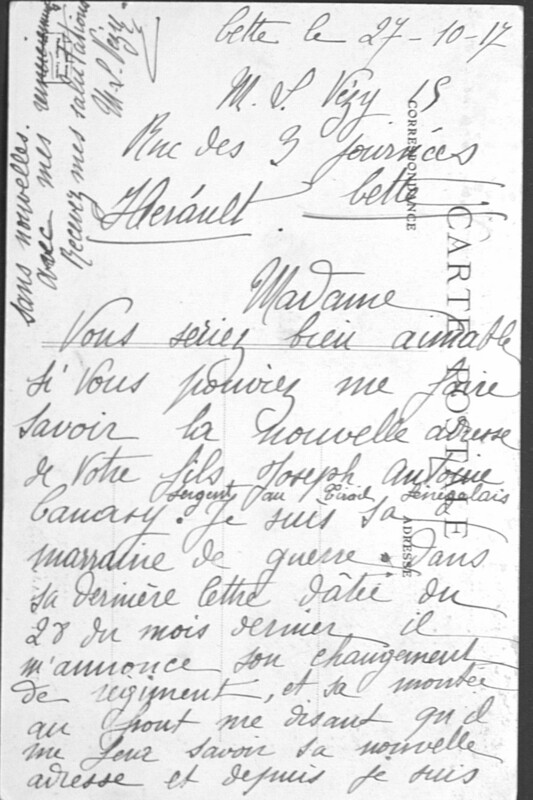 Cette le 27-10-17
M. S. Vézy 15
Rue des 3 Journées
Hérault. Cette
Madame
Vous seriez bien aimable
si Vous pouviez me faire
savoir la nouvelle adresse
de Votre fils Joseph Antoine
sergent au Tirail Sénégalais
Canavy. Je suis sa
marraine de guerre Dans
sa dernière lettre dâtée du
28 du mois dernier il
m'annonce son changement
de régiment, et sa montée
au front me disant qu'il
me fera savoir sa nouvelle
adresse et depuis je suis
sans nouvelles.
Avec mes
Recevez mes salutations
M. S. Vézy
CARTE POSTALE
CORRESPONDANCE
ADRESSE